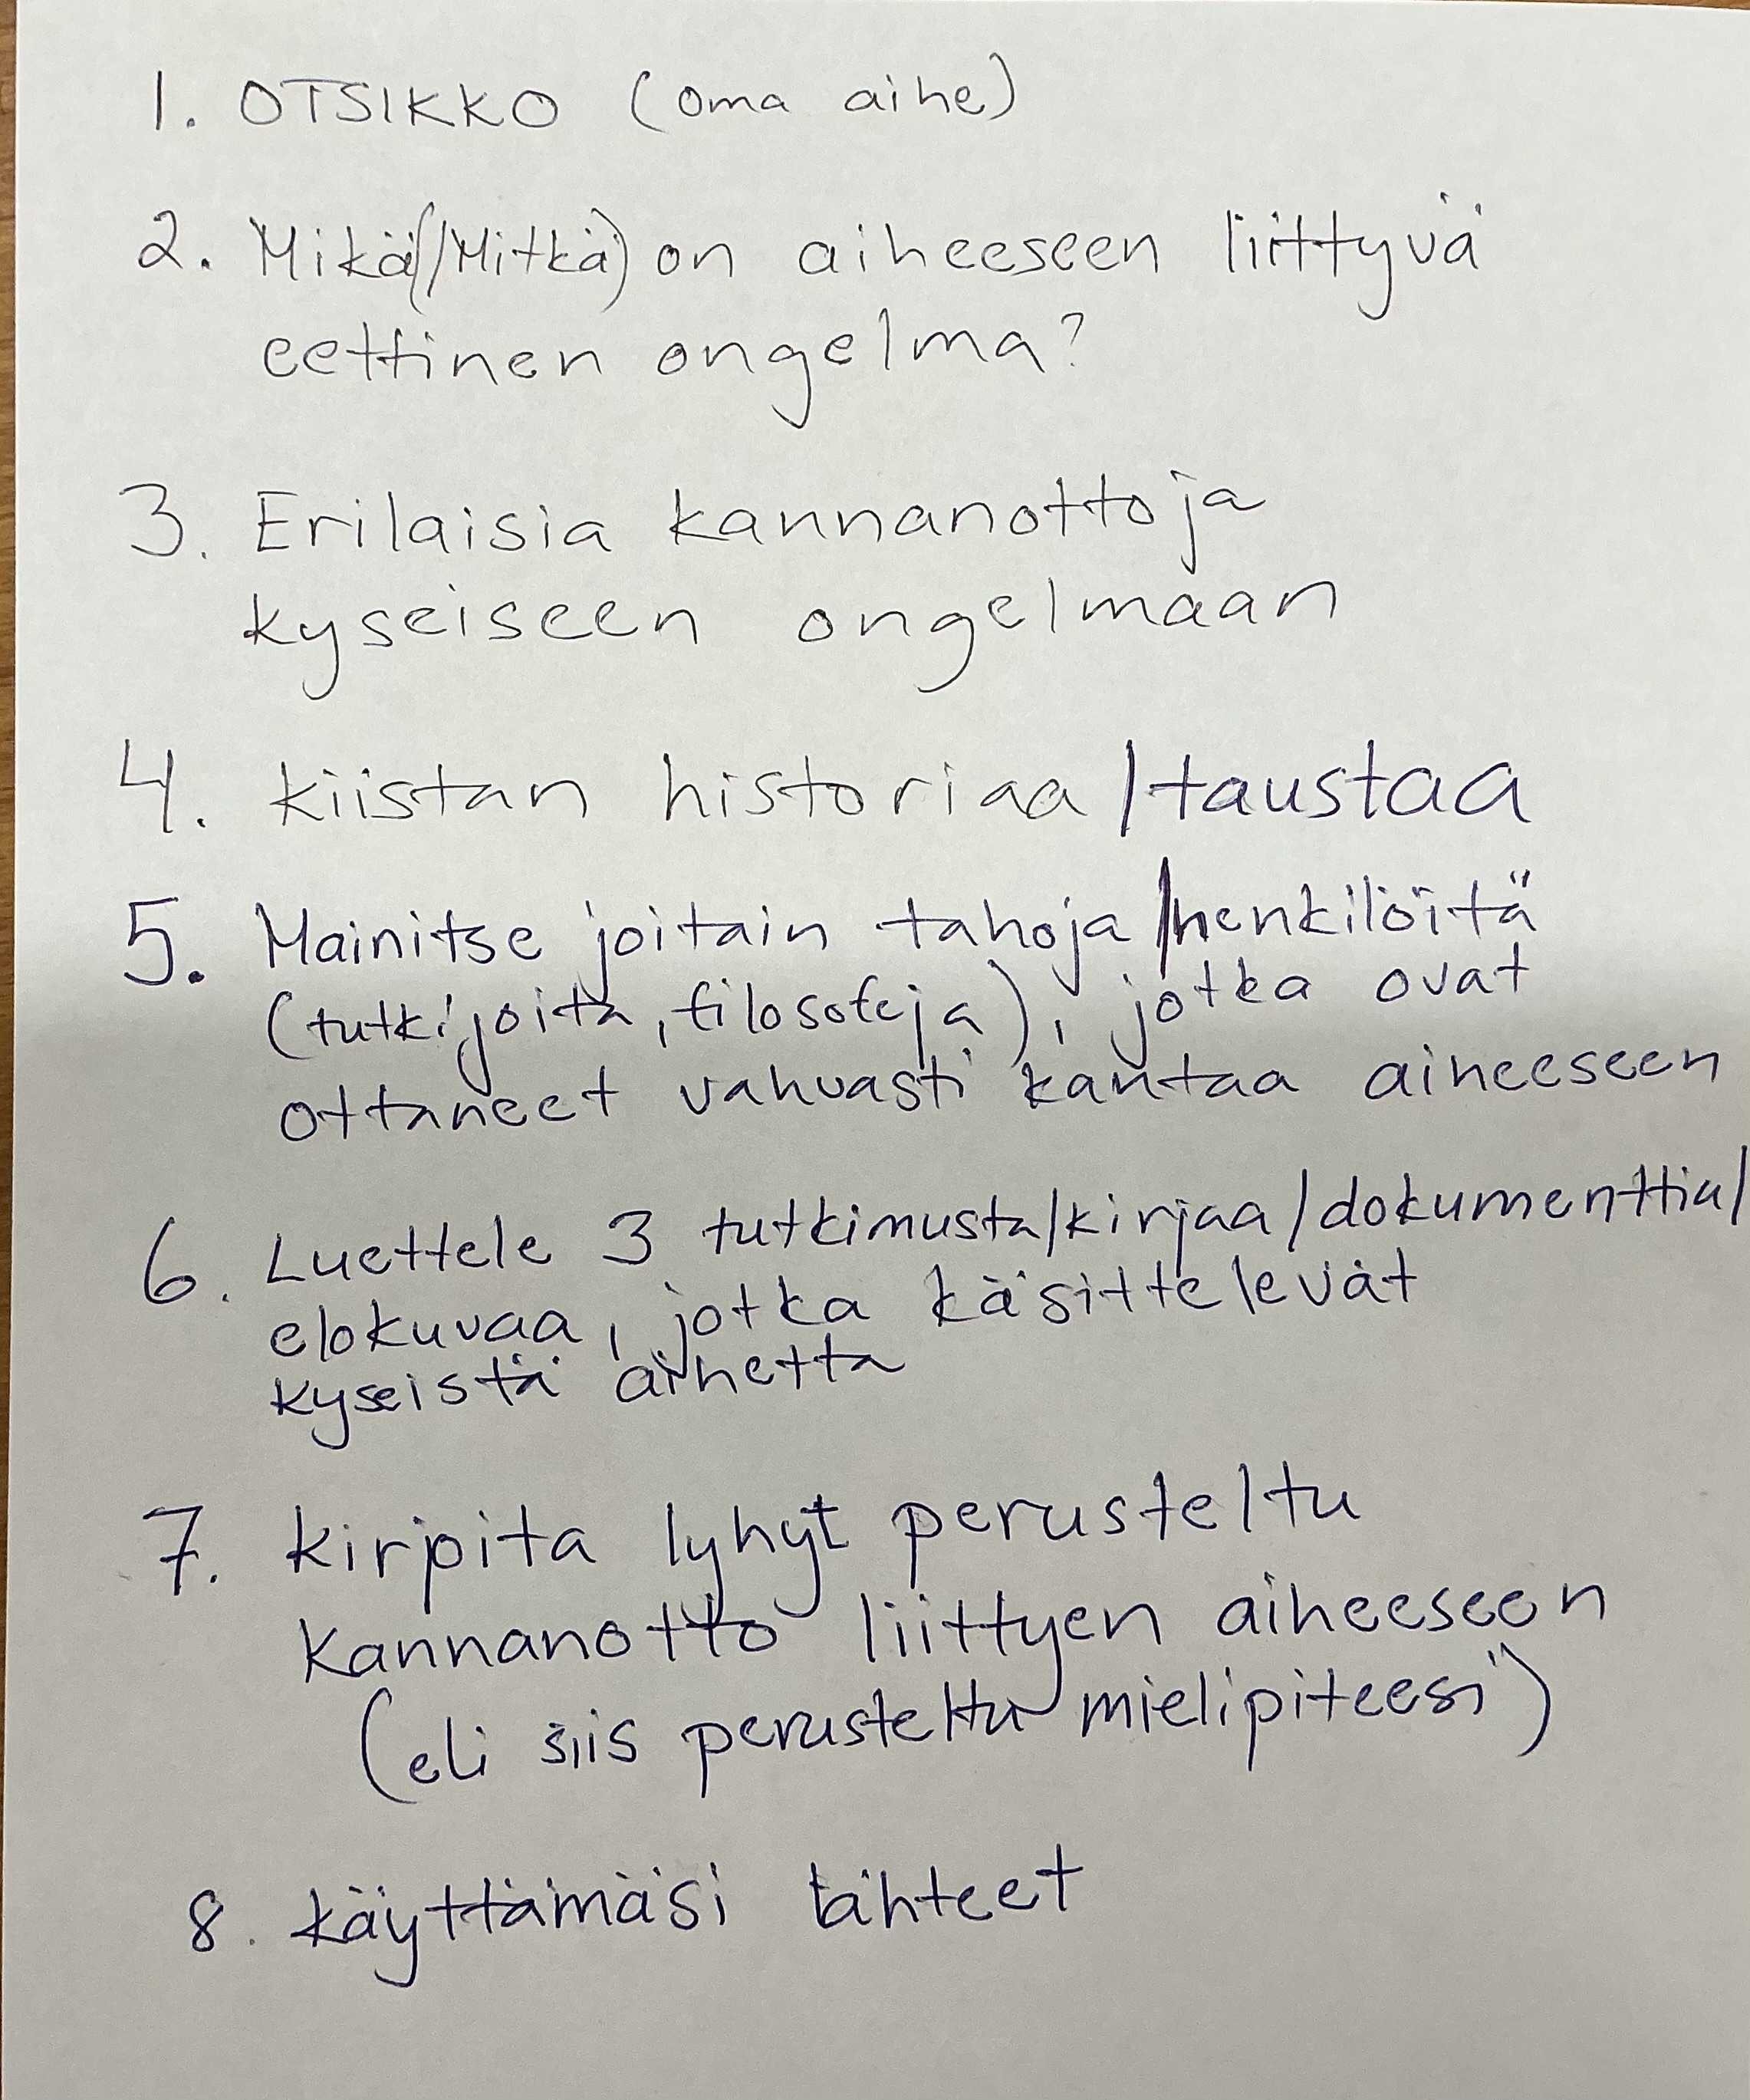 1. OTSIKKO (oma aihe)
2. Mikä(/Mitkä) on aiheeseen liittyvä
eettinen ongelma?
3. Erilaisia kannanottoja
kyseiseen ongelmaan
4. kiistan historiaa/taustaa
5. Mainitse joitain tahoja/henkilöitä
(tutkijoita, filosofeja), jotka ovat
ottaneet vahvasti kantaa aiheeseen
6. Luettele 3 tutkimusta/kirjaa/dokumenttia/
elokuvaa, jotka käsittelevät
kyseistä aihetta
7. kirjoita lyhyt perusteltu
kannanotto liittyen aiheeseen
(eli siis perusteltu mielipiteesi)
8. käyttämäsi lähteet